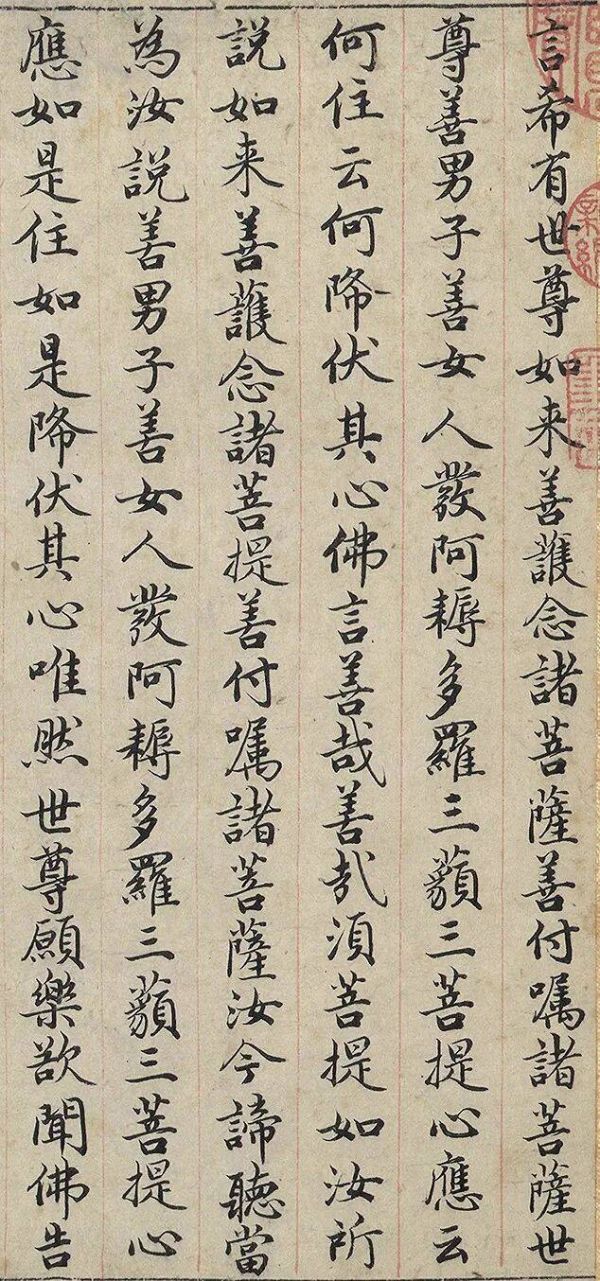 言希有世尊如来善護念諸菩薩善付嘱諸菩薩世
尊善男子善女人發阿耨多羅三藐三菩提心應云
何住云何降伏其心佛言善哉善哉湏菩提如汝所
説如来善護念諸菩提善付嘱諸菩薩汝今諦聽當
為汝説善男子善女人發阿耨多羅三藐三菩提心
應如是住如是降伏其心唯然世尊願樂欲聞佛告